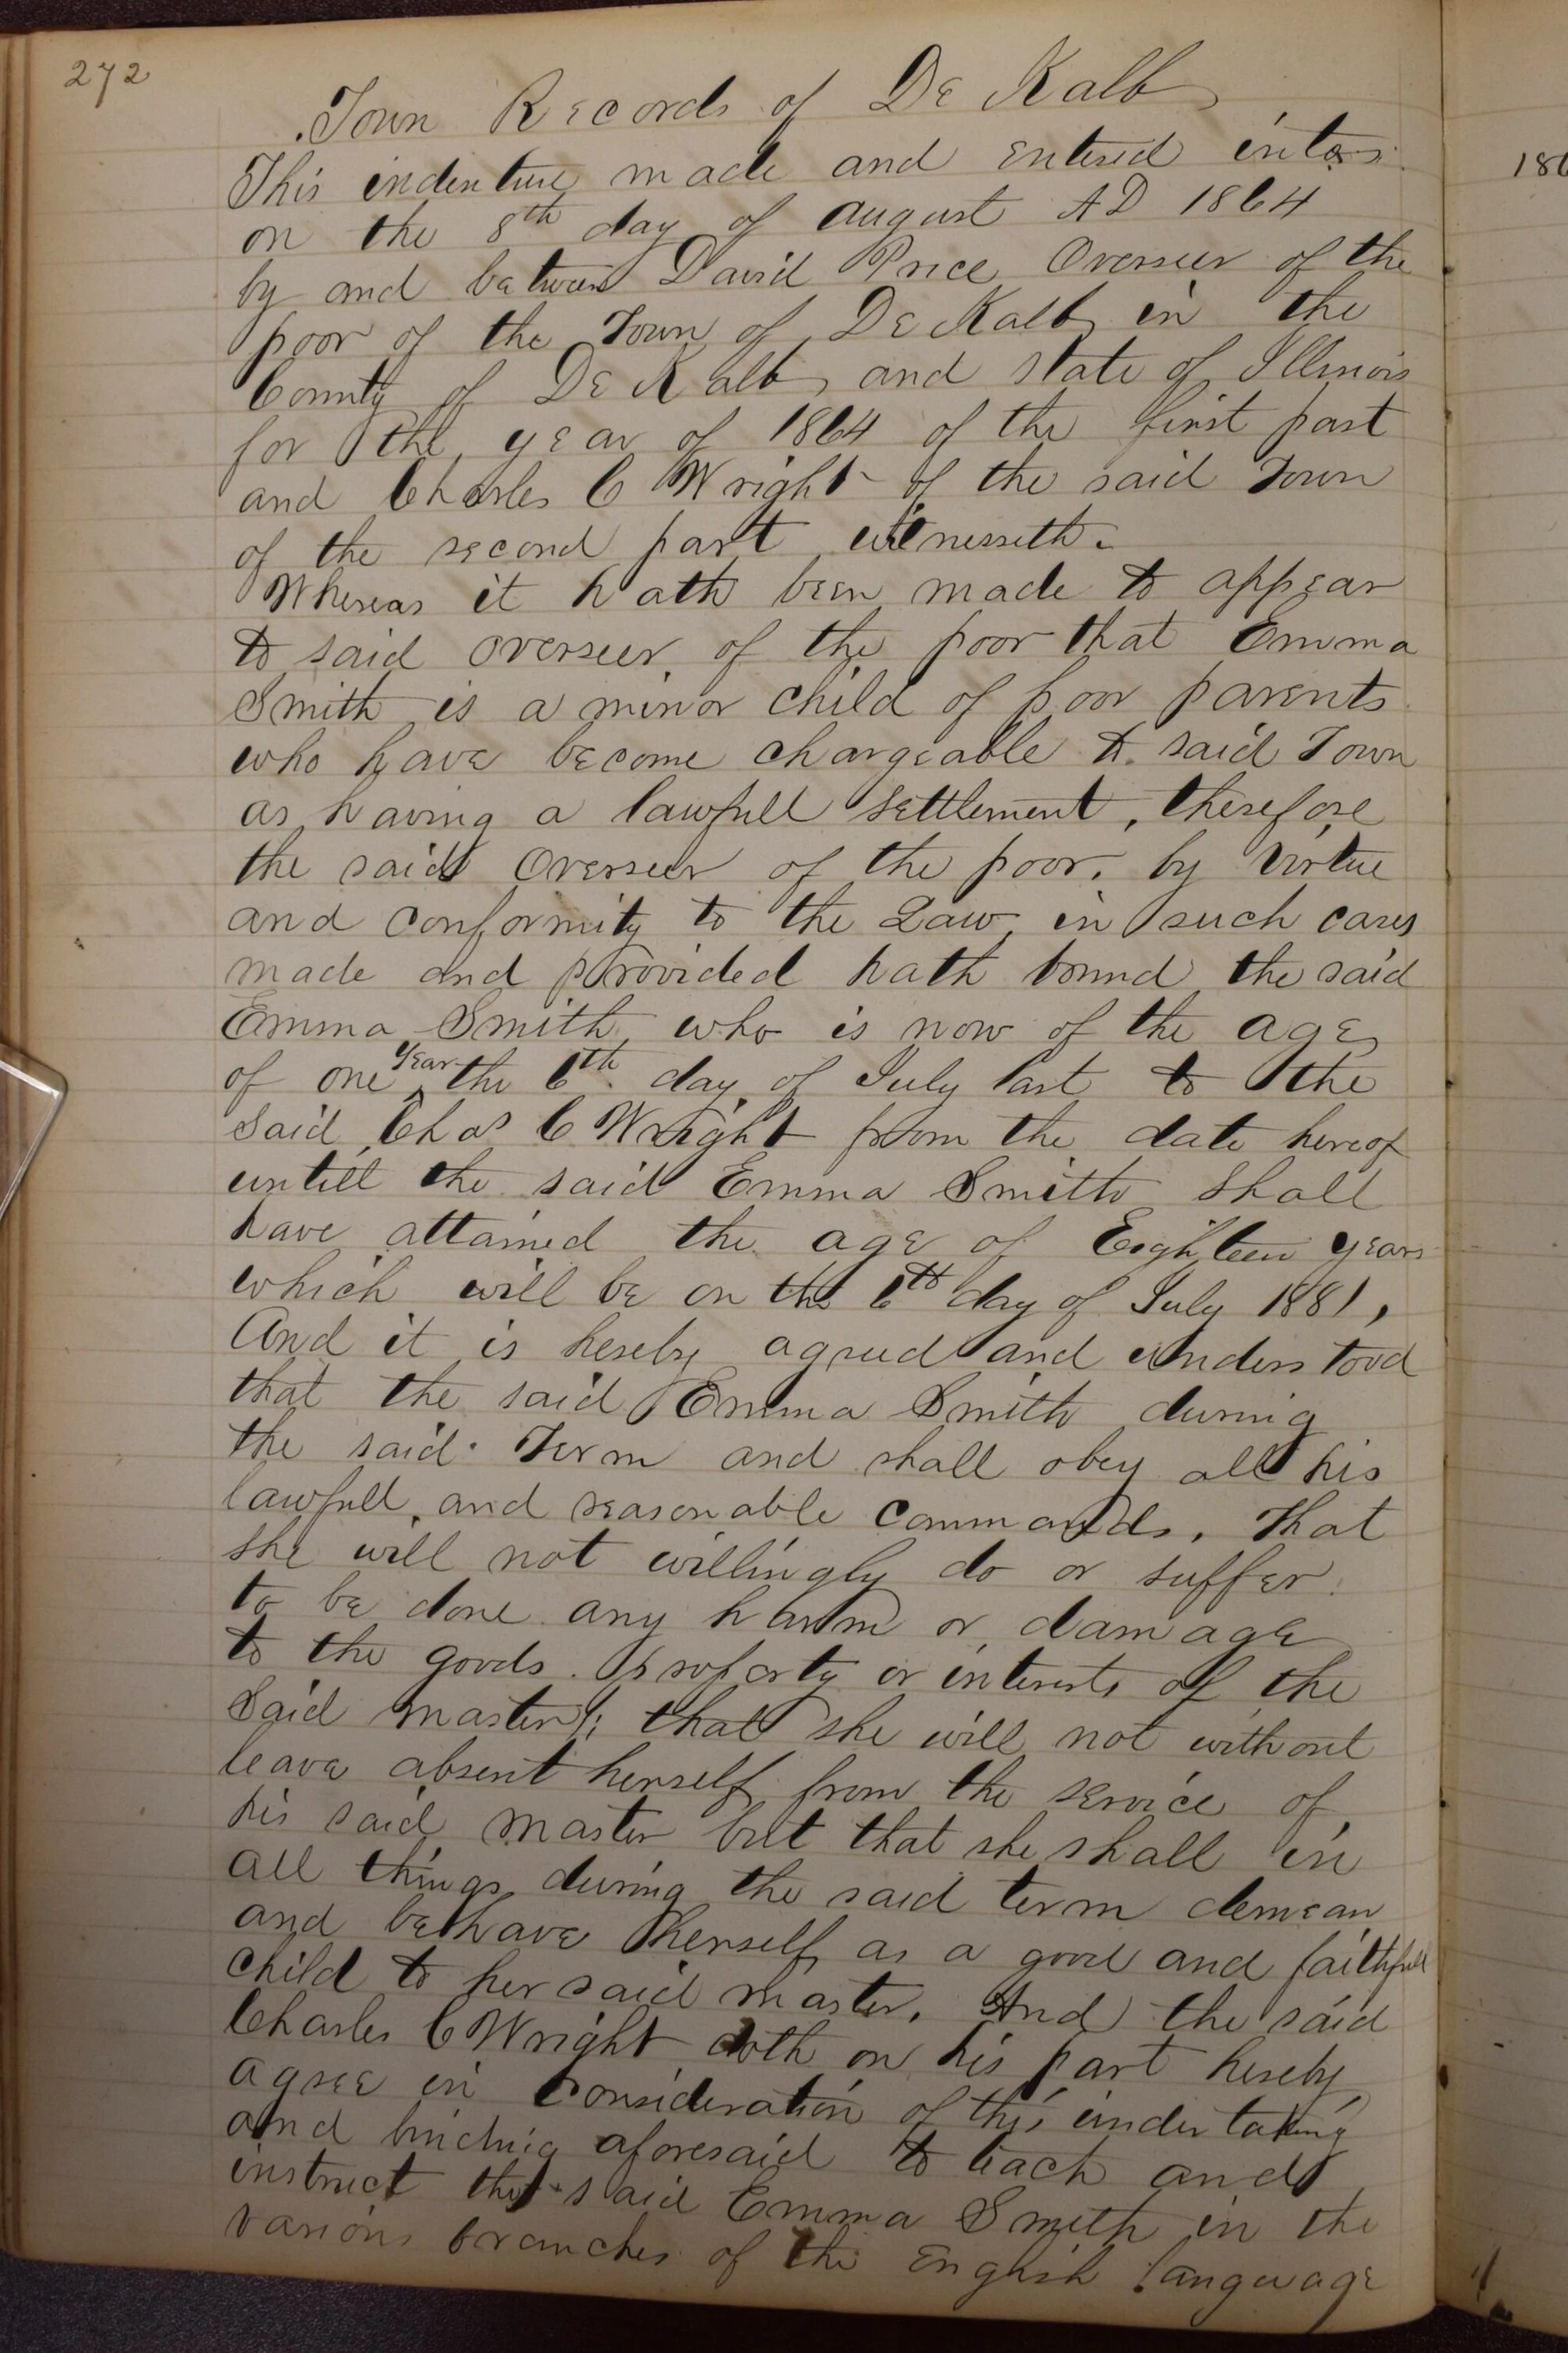 272
Town Records of De Kalb
This indenture made and entered into
on the 8th day of August AD 1864
by and between David Price Overseer of the
poor of the Town of De Kalb in the
County of De Kalb and state of Illinois
for the year of 1864 of the first part
and Charles C Wright of the said Town
of the second part witnesseth.
Whereas it hath been made to appear
to said overseer of the poor that Emma
Smith is a minor child of poor parents
who have become chargeable to said Town
as having a lawfull settlement, therefore
the said Overseer of the poor, by virtue
and conformity to the Law in such cases
made and provided hath bound the said
Emma Smith who is now of the age
of one year the 6th day of July last to the
said Chas C Wright from the date hereof
untill the said Emma Smith shall
have attained the age of Eighteen years
which will be on the 6th day of July 1881,
And it is hereby agreed and understood
that the said Emma Smith during
the said Term and shall obey all his
lawfull, and reasonable commands, That
she will not willingly do or suffer
to be done any harm or damage
to the goods. property or interests of the
said master; that she will not without
leave absent herself from the service of
his said master but that she shall in
all things during the said term demean
and behave herself as a good and faithfull
child to her said master. And the said
Charles C Wright doth on his part hereby
agree in consideration of this undertaking
and binding aforesaid to teach and
instruct the said Emma Smith in the
various branches of the English language
186